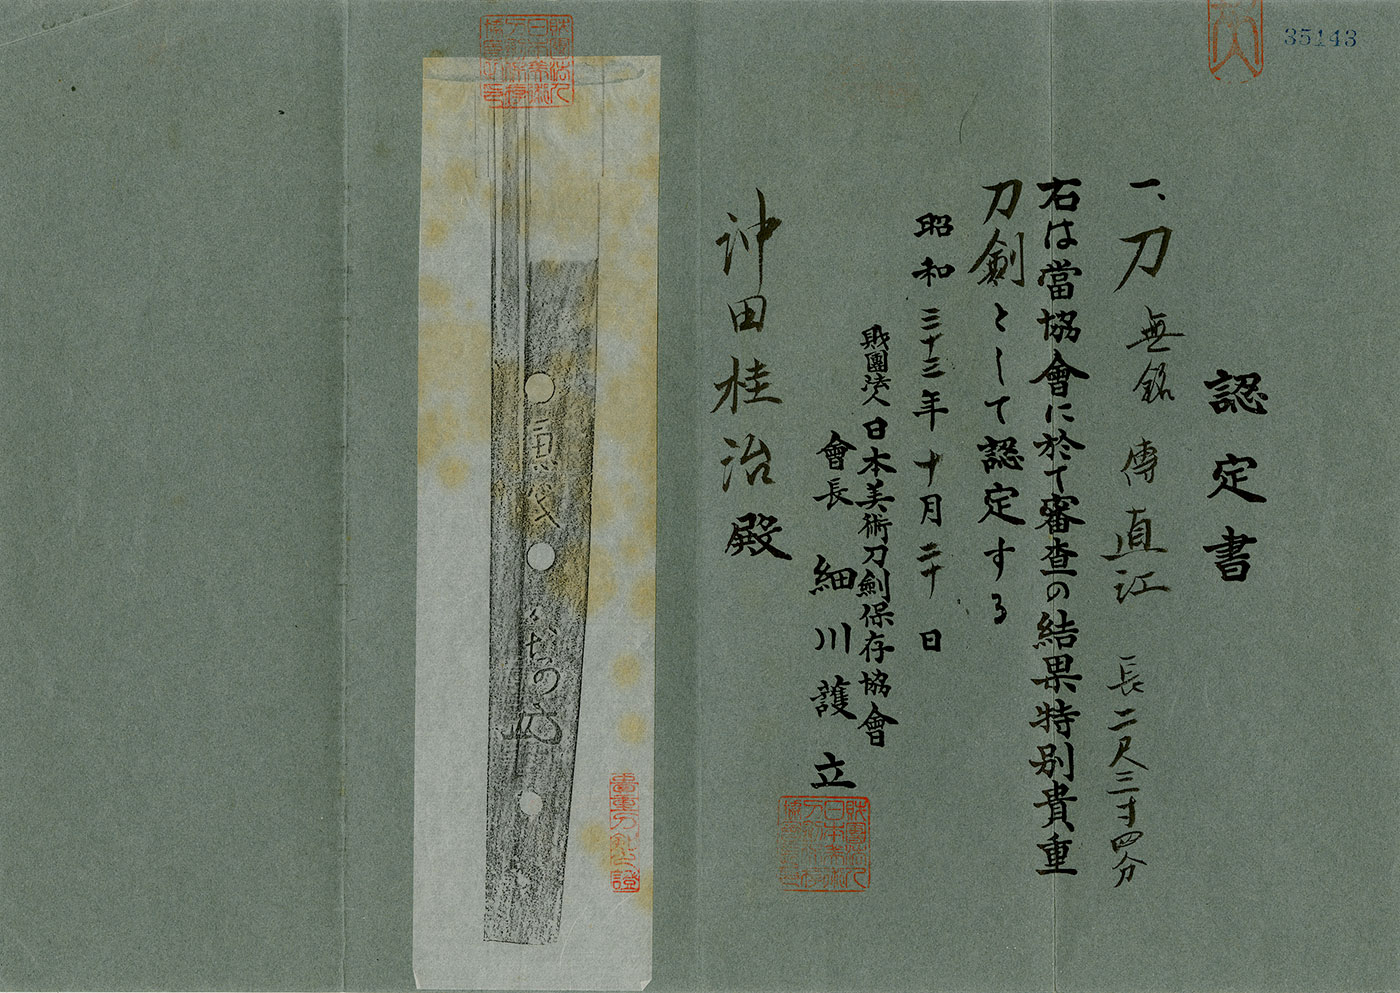 35143
認定書
一、刀 無銘 傳直江 長二尺三寸四分
右は當協會に於て審査の結果特別貴重
刀劍として認定する
昭和三十三年十月二十日
財團法人日本美術刀劍保存協會
會長 細川護立
沖田桂治殿
貴重刀剣之證